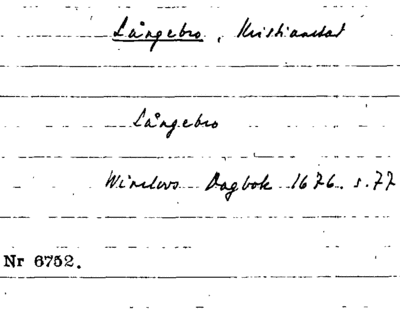 Långebro, Kristianstad
Långebro
Dagbok 1676. s. 77
Nr 6752.